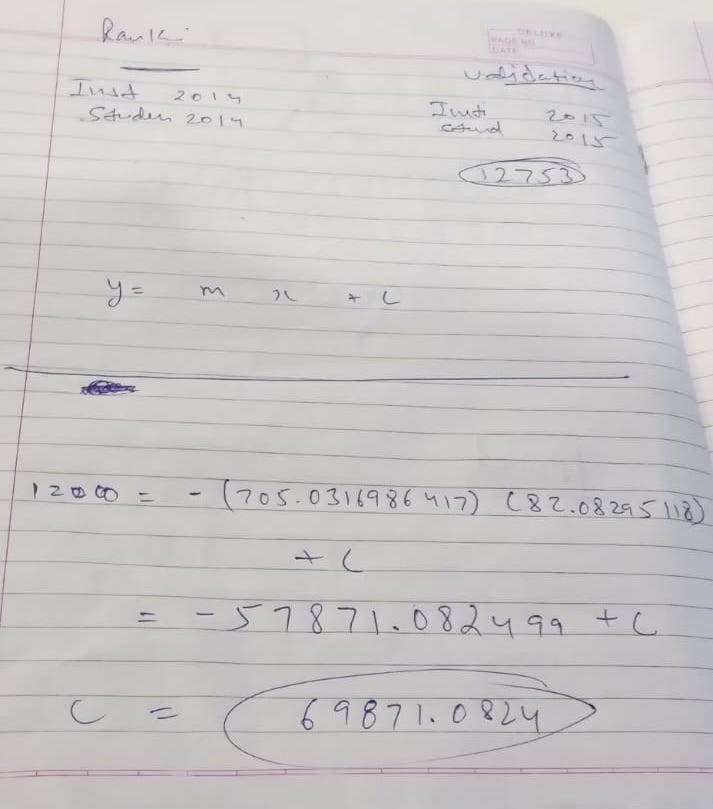 Rank:
DELUXE
PAGE NO
DATE
Validation
Inst 2014
Studen 2014
Insti 2015
Stud 2015
12753
y = m x + C
12000 = - (705.0316986417) (82.08295118)
+ C
= - 57871.082499 + C
C = 69871.0824